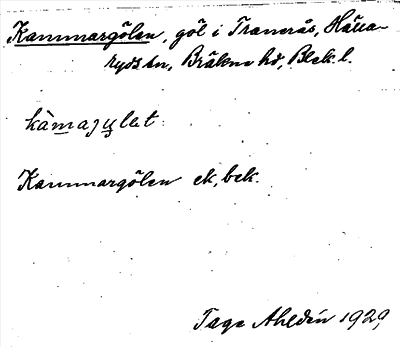 Kammargölen, göl i Tranerås, Hälla-
ryds sn, Bräkne hd, Blek. l.
kàmajylet
Kammargölen ek, bek.
Tage Ahldén 1929